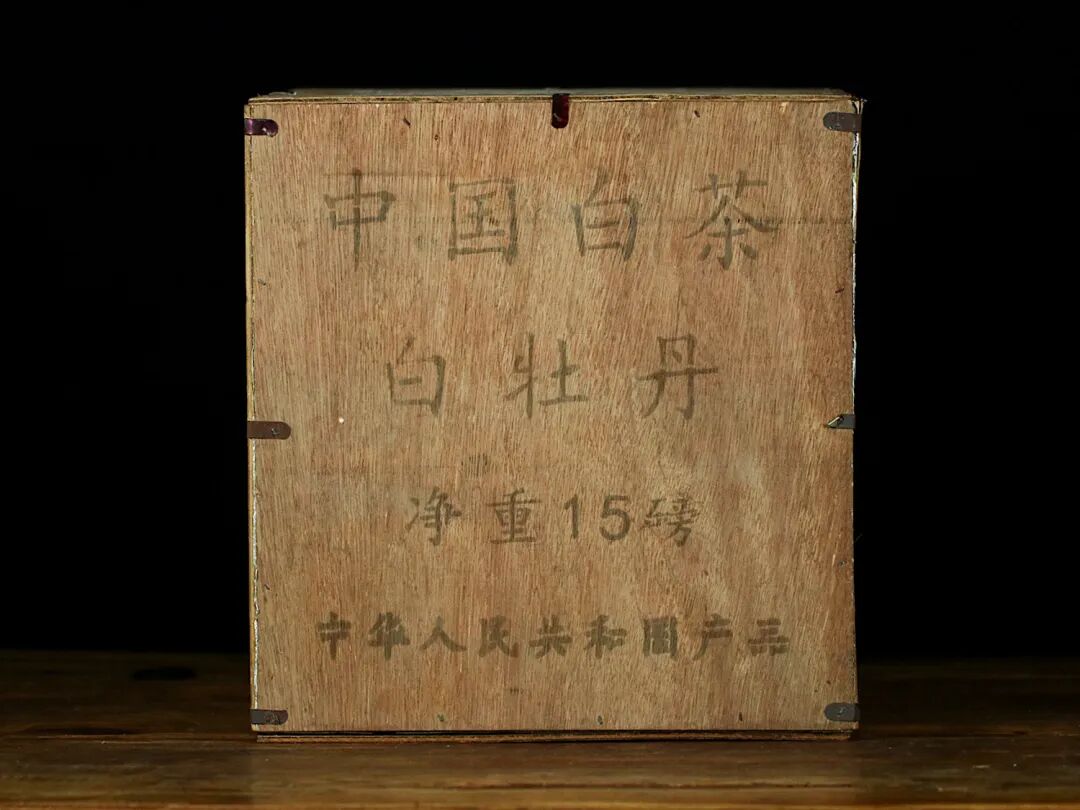 中国白茶
白牡丹
净重15磅
中华人民共和国产品